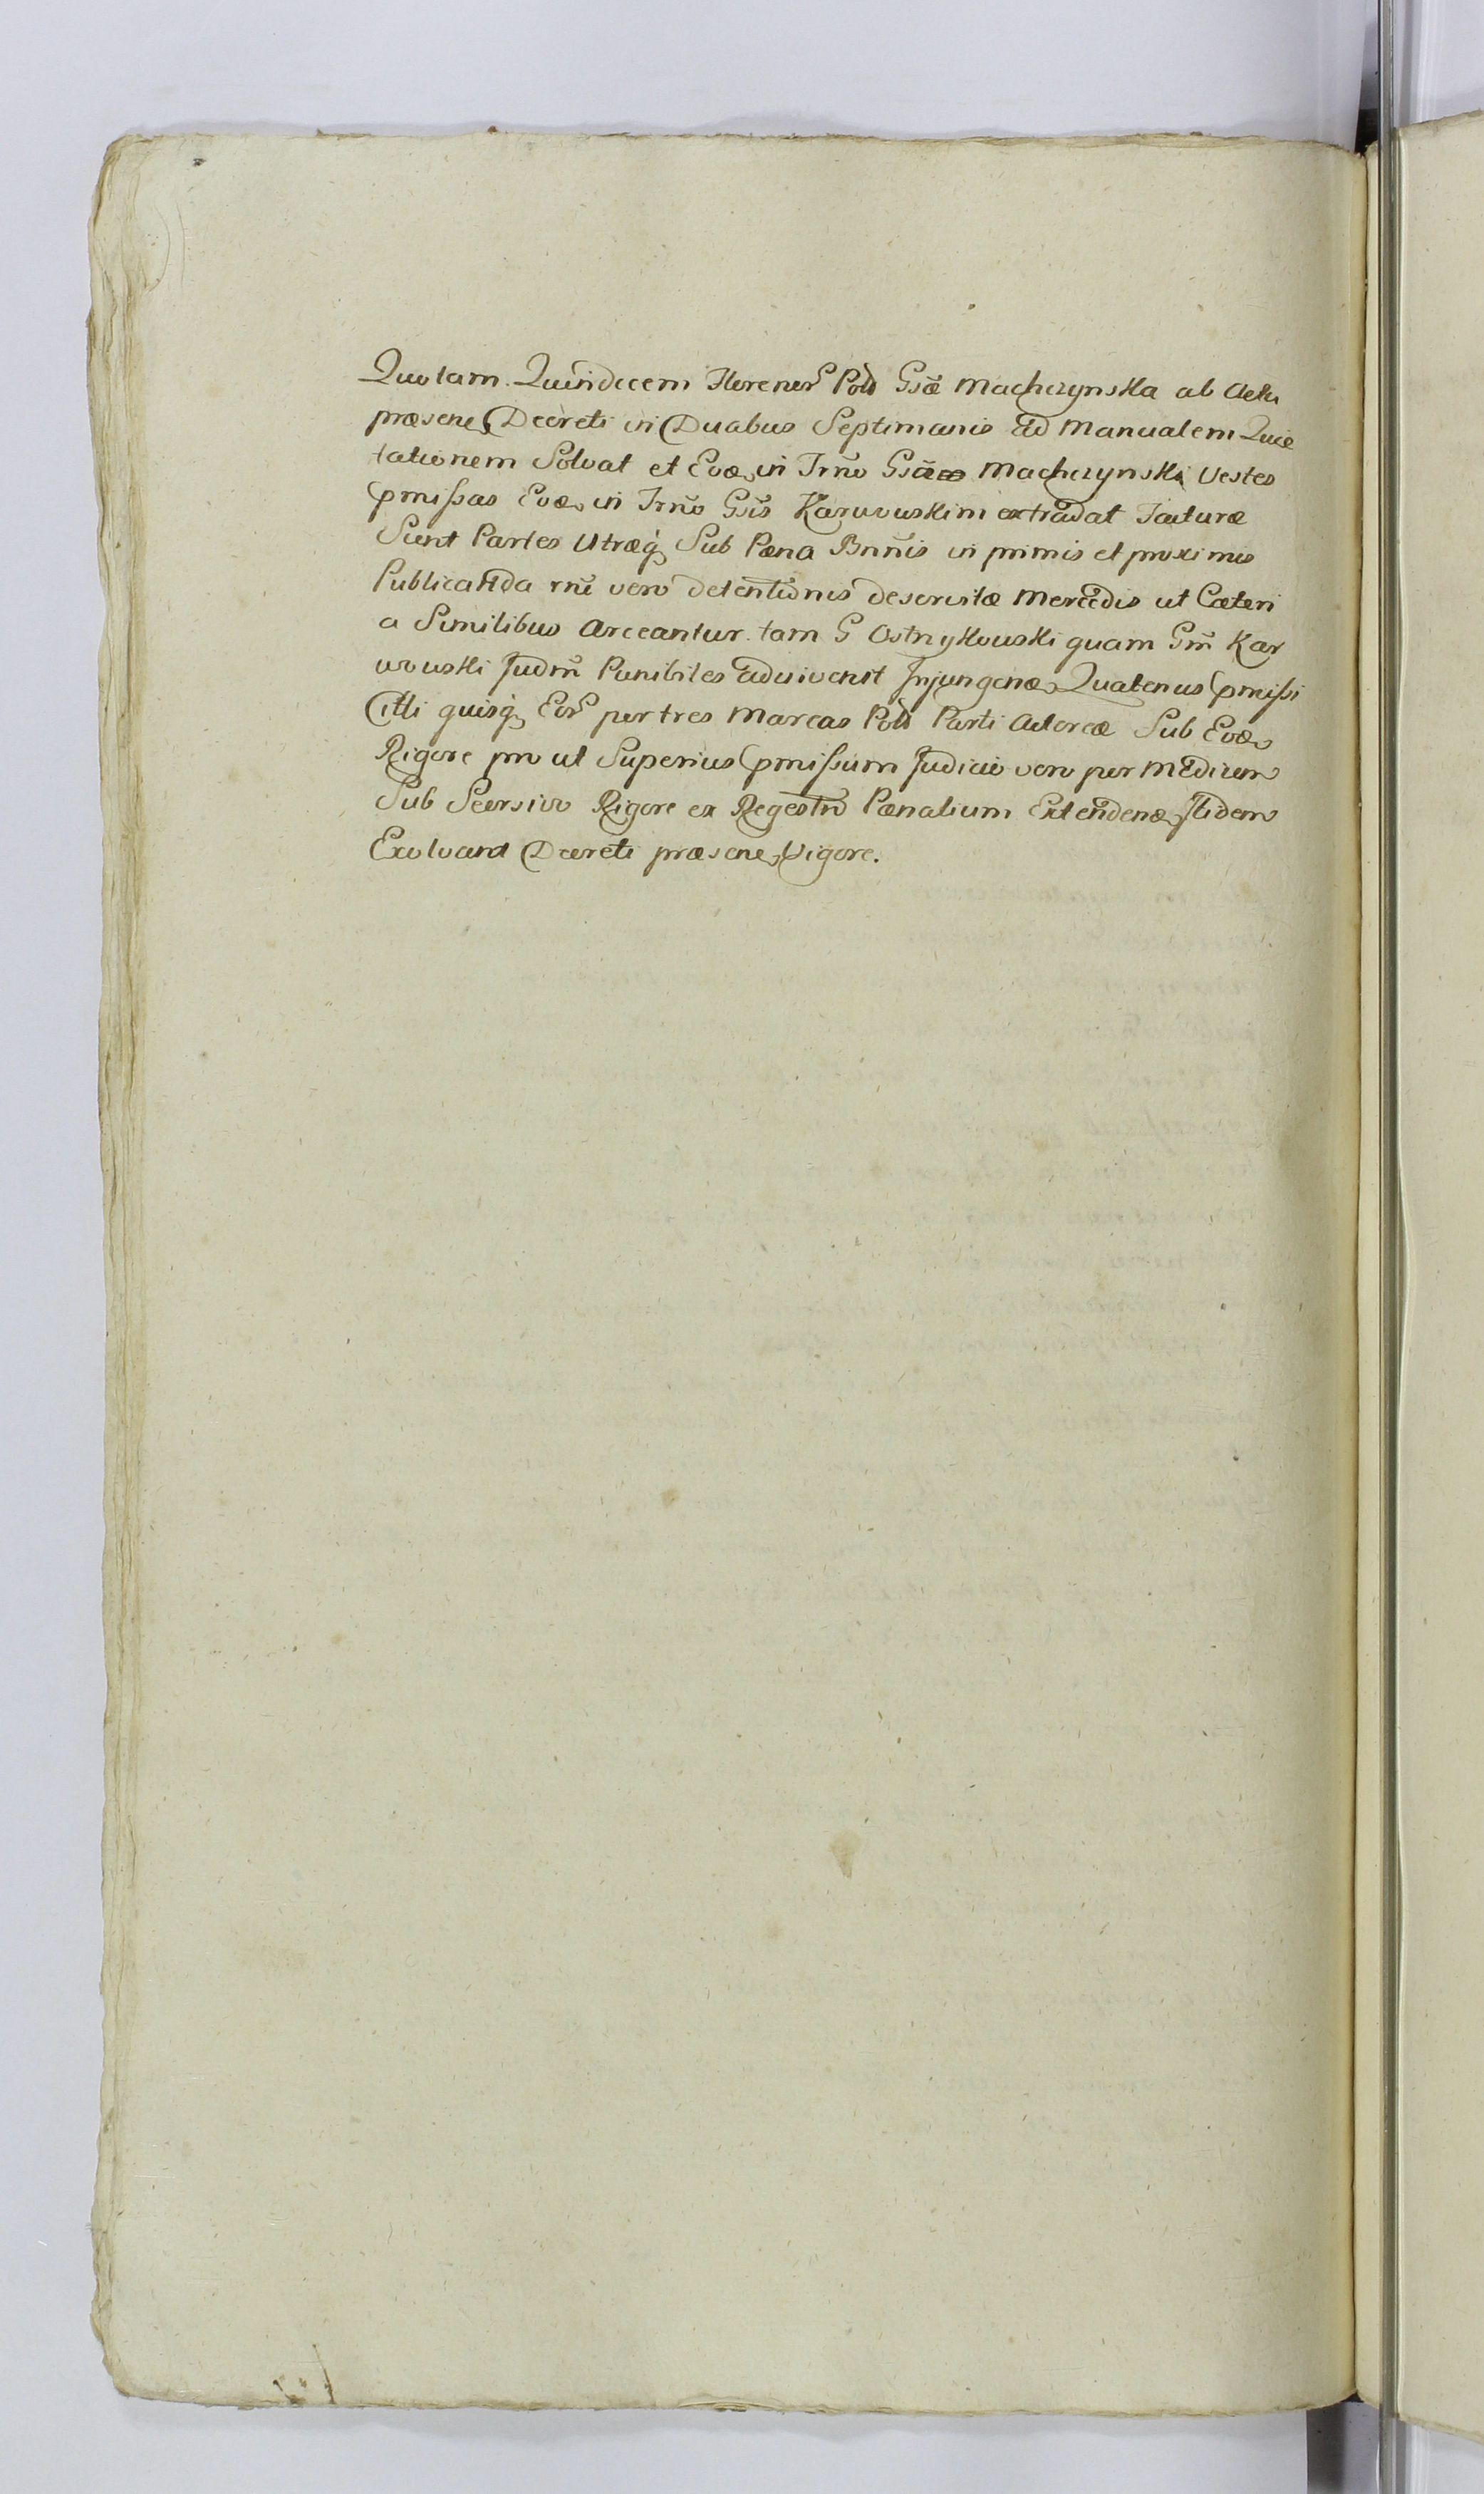 Quotam Quindecem Florenor Pold Gsæ Machczynska ab Actu
præsene Decreti in Duabus Septimanis ad Manualem Quie
tationem Solvat et Eoæ in Trno Gsæ Machczynski Vestes
pmissas Eoæ in Trno Gsis Karwowskim extradat Jacturæ
Sunt Partes Utræq Sub Pæna Bnnis in primis et proximis
Publicanda rne vero detentionis descrittæ Mercedis ut Cæteri
a Similibus Arceantur tam G Ostrzykowski quam Gm Kar
wowski Judm Punibiles adinvenit Injungenæ Quatenus pmissi
Citti quisq Eor per tres Marcas Pold Parti Actoreæ Sub Eoæ
Rigore pro ut Superius pmissum Judicio vero per Mediem
Sub Seorsivo Rigore ex Regestro Pænalium Extendenæ Itidem
Exolvant Decreti præsene Vigore.